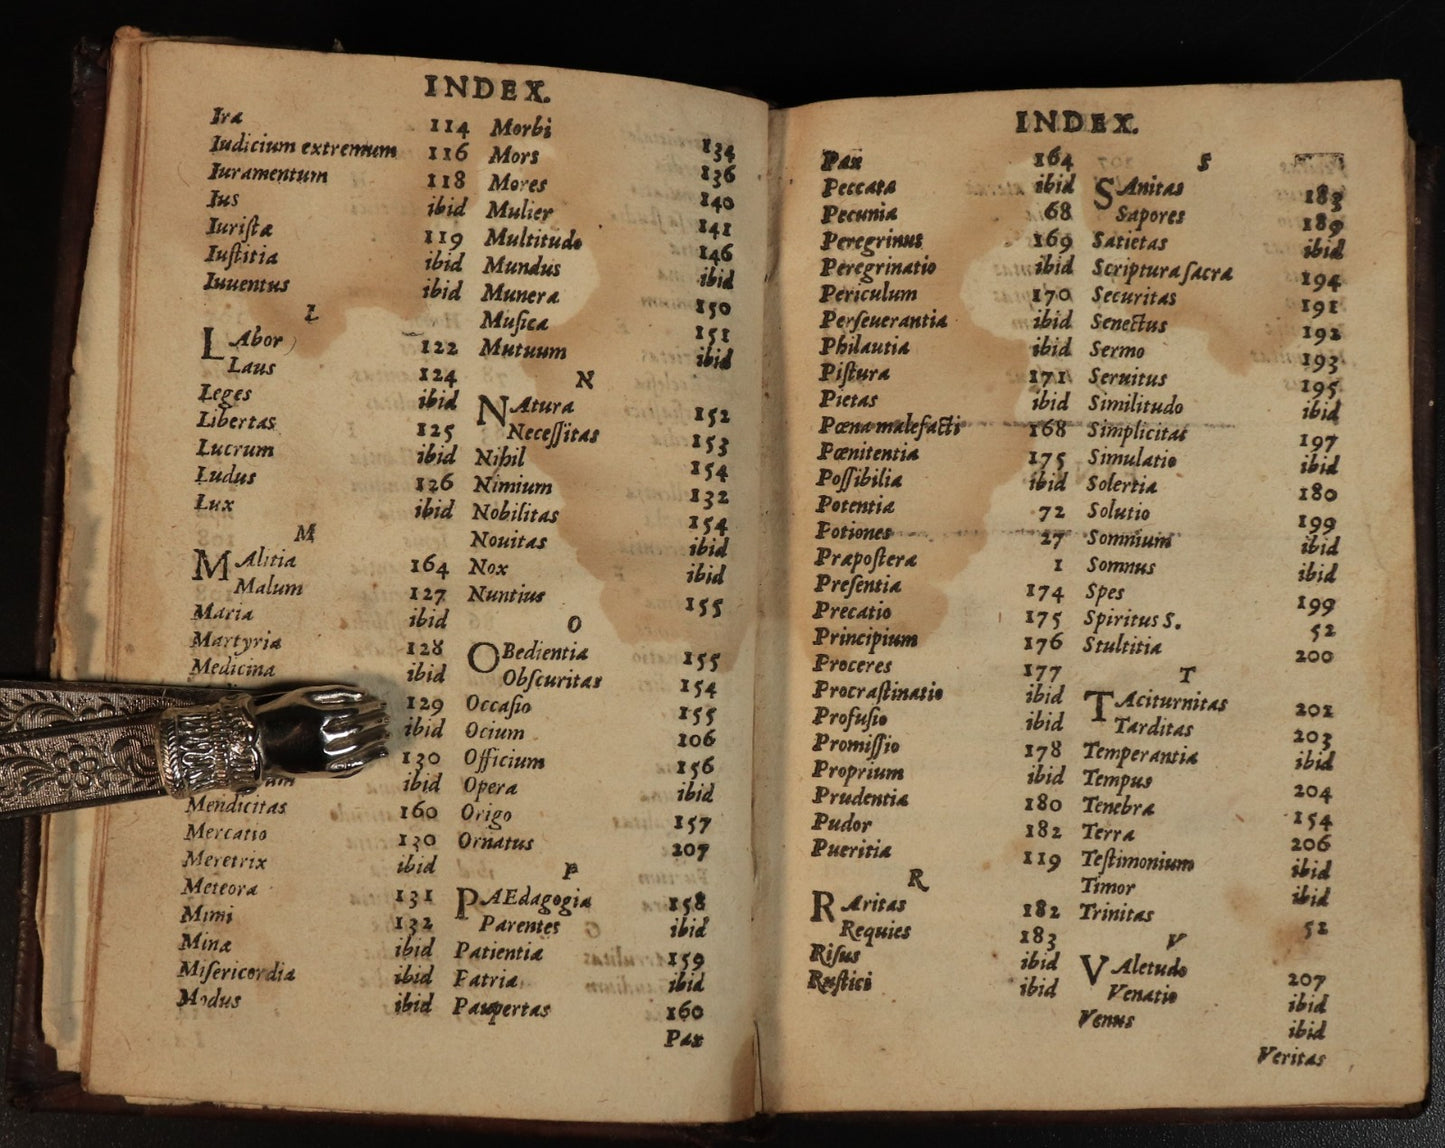 INDEX.
Ira 114
Iudicium extremum 116
Iuramentum 118
Ius ibid
Iuriſta 119
Iuſtitia ibid
Iuuentus ibid
L
LAbor 122
Laus 124
Leges ibid
Libertas 125
Lucrum ibid
Ludus 126
Lux ibid
M
MAlitia 164
Malum 127
Maria ibid
Martyria 128
Medicina ibid
129
ibid
130
ibid
Mendicitas 160
Mercatio 130
Meretrix ibid
Meteora 131
Mimi 132
Minæ ibid
Miſericordia ibid
Modus ibid
Morbi 134
Mors 136
Mores 140
Mulier 141
Multitudo 146
Mundus ibid
Munera 150
Muſica 151
Mutuum ibid
N
NAtura 152
Neceſſitas 153
Nihil 154
Nimium 132
Nobilitas 154
Nouitas ibid
Nox ibid
Nuntius 155
O
OBedientia 155
Obſcuritas 154
Occaſio 155
Ocium 106
Officium 156
Opera ibid
Origo 157
Ornatus 207
P
PAEdagogia 158
Parentes ibid
Patientia 159
Patria ibid
Paupertas 160
Pax
INDEX.
Pax 164
Peccata ibid
Pecunia 68
Peregrinus 169
Peregrinatio ibid
Periculum 170
Perſeuerantia ibid
Philautia ibid
Piſtura 171
Pietas ibid
Pœna malefacti 168
Pœnitentia 175
Poſſibilia ibid
Potentia 72
Potiones 27
Præpoſtera 1
Preſentia 174
Precatio 175
Principium 176
Proceres 177
Procraſtinatio ibid
Profuſio ibid
Promiſſio 178
Proprium ibid
Prudentia 180
Pudor 182
Pueritia 119
R
RAritas 182
Requies 183
Riſus ibid
Ruſtici ibid
S
SAnitas 183
Sapores 189
Satietas ibid
Scriptura ſacra 194
Securitas 191
Senectus 192
Sermo 193
Seruitus 195
Similitudo ibid
Simplicitas 197
Simulatio ibid
Solertia 180
Solutio 199
Somnium ibid
Somnus ibid
Spes 199
Spiritus S. 52
Stultitia 200
T
TAciturnitas 202
Tarditas 203
Temperantia ibid
Tempus 204
Tenebræ 154
Terra 206
Teſtimonium ibid
Timor ibid
Trinitas 52
V
VAletudo 207
Venatio ibid
Venus ibid
Veritas